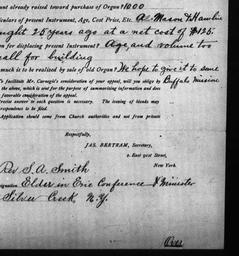 unt already raised toward purchase of Organ? 1000
ticulars of present Instrument, Age, Cost Price, Etc. A Mason & Hamlin
ught 25 years ago at a net cost of $125.
on for displacing present Instrument? Age, and volume too
all for building
much is to be realised by sale of old Organ? We hope to give it to some
To facilitate Mr. Carnegie's consideration of your appeal, will you oblige by Buffalo mission
is, which is one used for the purpose of summarising information and does
favorable consideration of the appeal.
recise answer to each question is necessary. The issuing of blanks may
correspondents to be irregular.
Application should come from Church authorities and not from private
Respectfully,
JAS. BERTRAM, Secretary,
2, East 91st Street,
New York.
Rev S. A. Smith
signation Elder in Erie Conference & Minister
Silver Creek, N.Y.
Over